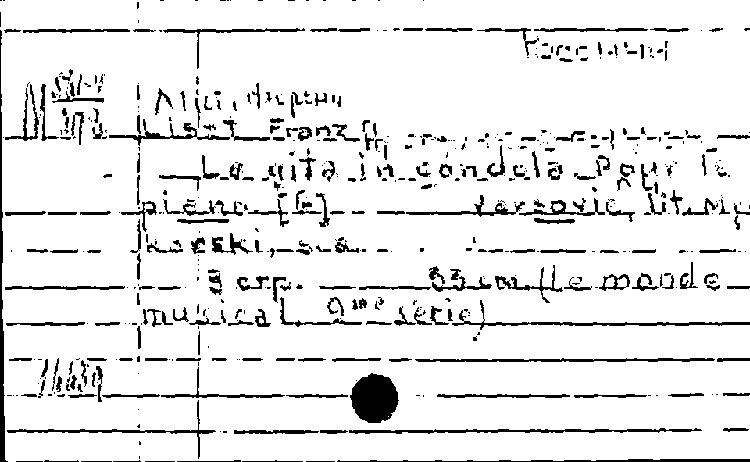 Россини
Лист, Ференц
Liszt Franz
La gita in gondola. Pour le
piano [G] Varsovie, lit. My
karski, s.a.
9 стр. 33 см. (Le monde
musical. 9me serie)
11639